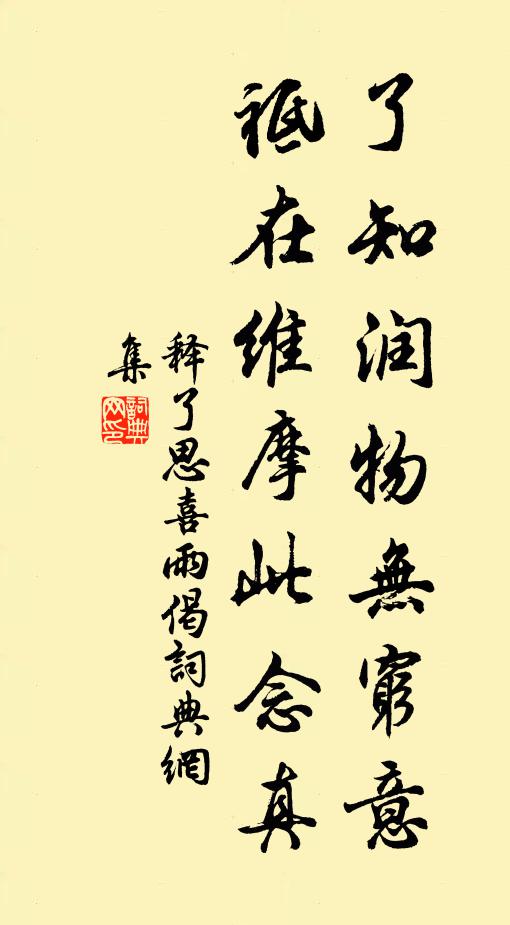 了知润物無窮意
祗在維摩此念真
释了思喜雨偈詞典網
集
詞典
网印